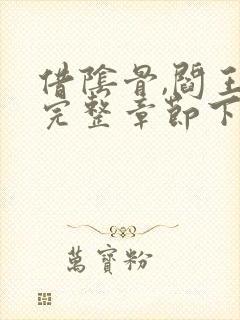 借陰骨,閻王
完整章節下
萬寶粉